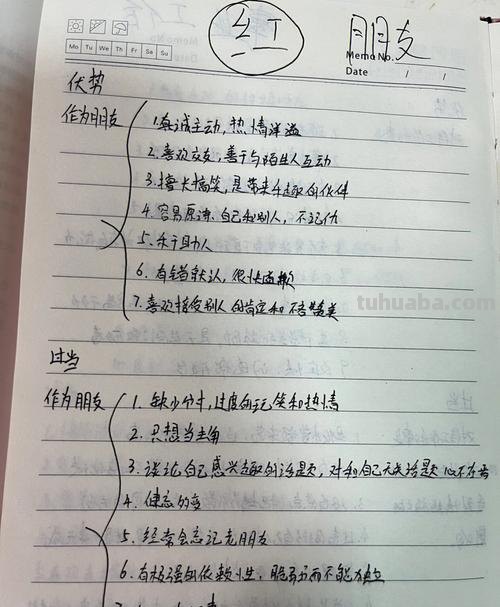 红
朋友
Memo No.
Mo Tu We Th Fr Sa Su
Date / /
优势
作为朋友
1.真诚主动,热情洋溢
2.喜欢交友,善于与陌生人互动
3.擅长搞笑,是带来乐趣的伙伴
4.容易原谅自己和别人,不记仇
5.乐于助人
6.有错就认,很快道歉
7.喜欢接受别人的肯定和不吝赞美
tuhuaba.com
过当
作为朋友
1.缺少分寸,过度的玩笑和热情
2.只想当主角
3.谈论自己感兴趣的话题,对和自己无关话题心不在焉
4.健忘多变
5.经常会忘记老朋友
6.有极强的依赖性,脆弱而不能独立